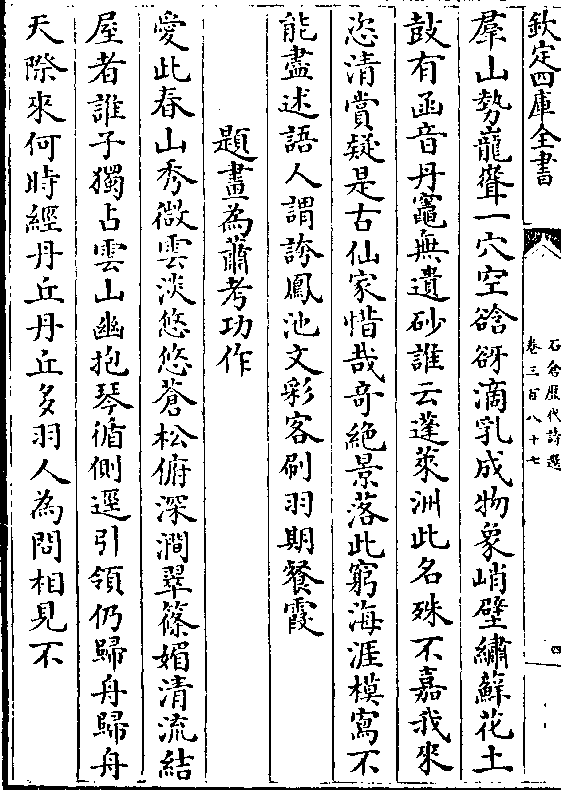 欽定四庫全書
石倉歷代詩選
卷三百八十七
四
羣山勢巃嵸一穴空谽谺滴乳成物象峭壁繡蘚花土
鼓有函音丹竈無遺砂誰云蓬萊洲此名殊不嘉我來
恣清賞疑是古仙家惜哉奇絶景落此窮海涯模寫不
能盡述語人謂誇鳳池文彩客刷羽期餐霞
題畫為蕭考功作
愛此春山秀微雲淡悠悠蒼松俯深澗翠篠媚清流結
屋者誰子獨占雲山幽抱琴循側逕引領仍歸舟歸舟
天際來何時經丹丘丹丘多羽人為問相見不